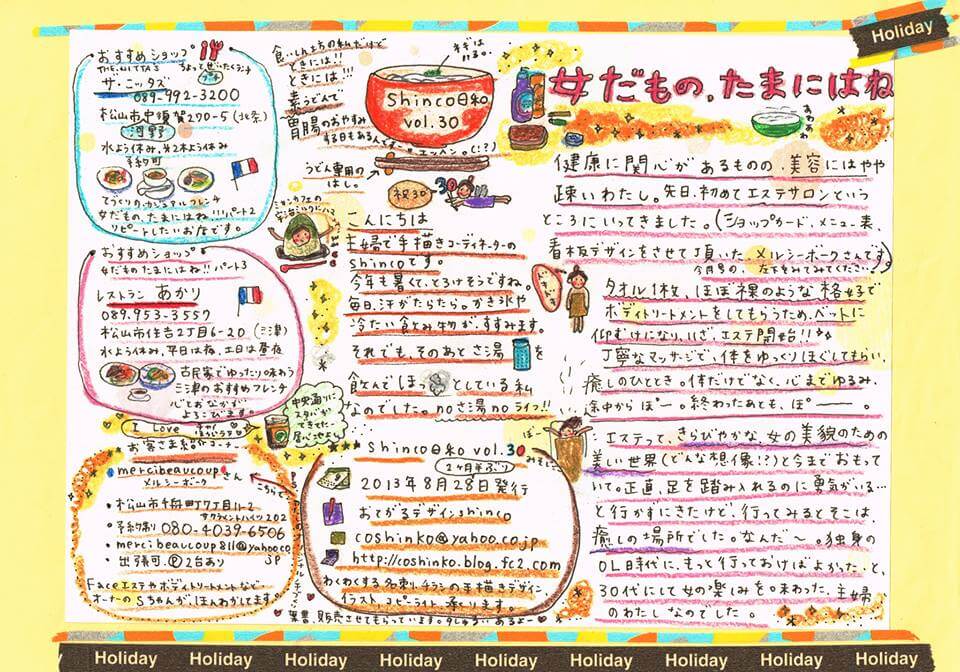 Holiday
女だもの、たまにはね
健康に関心があるものの、美容にはやや
疎いわたし。先日、初めてエステサロンという
ところにいってきました。(ショップカード、メニュー表、
看板デザインをさせて頂いた、メルシーボークさんです)
今月号の、左下をみてみてください
タオル1枚、ほぼ裸のような格好で
ボディトリートメントをしてもらうため、ベットに
仰むけになり、いざ、エステ開始!!
丁寧なマッサージで、体をゆっくりほぐしてもらい、
癒しのひととき。体だけでなく、心までゆるみ、
途中からぽー。終わったあとも、ぽー。
エステって、きらびやかな、女の美貌のための
美しい世界(どんな想像!?)と今までおもって
いて。正直、足を踏み入れるのに勇気がいる…
と行かずにきたけど、行ってみるとそこは、
癒しの場所でした。なんだ〜。独身の
OL時代に、もっと行っておけばよかった、と、
30代にして女の楽しみを味わった、主婦
のわたしなのでした。
食いしん坊の私だけど
ときには!!
ときには!!!
素うどんで
胃腸のおやすみ
ネギは
Shinco日和
vol.30
うどん専用の
はし。
祝30
30
こんにちは
主婦で手描きコーディネーターの
shincoです。
今年も暑くて、とろけそうですね。
毎日、汗がたらたら。かき氷や
冷たい飲み物が、すすみます。
それでも、そのあとさ湯を
飲んでほっとしている私
なのでした。noさ湯noライフ!!
中央通りに
スタバが
できてた
おすすめショップ
THE.NUTTA'S
ちょっとぜいたくランチ
プチ
ザ・ニッタズ
089-992-3200
松山市中須賀270-5(北条)
河野
水よう休み、第2木よう休み
予約可
てづくりの、カジュアルフレンチ
女だもの、たまにはね!!!パート2
リピートしたいお店です。
おすすめショップ
女だもの たまにはね!!パート3
レストラン あかり
089-953-3557
松山市住吉2丁目6-20(三津)
水よう休み、平日は夜、土日は昼夜
古民家でゆったり味わう
三津のおすすめフレンチ
心とおなかが
よろこびます。
I Love
お客さま紹介コーナー
mercibeaucoupさん
メルシーボーク
こちらで
・松山市千舟町7丁目11-2
サクラメントハイツ202
・予約制 080-4039-6506
・mercibeaucoup811@yahoo.co.jp
・出張可。P2台あり
Faceエステやボディトリートメントなど、
オーナーのSちゃんが、ほんわかしてます。
shinco日和 vol.30
2ヶ月半ぶり
2013年8月28日発行
おてがるデザインshinco
coshinko@yahoo.co.jp
http://coshinko.blog.fc2.com
わくわくする名刺、チラシの手描きデザイン、
イラスト、コピーライト 承ります。
Holiday Holiday Holiday Holiday Holiday Holiday Holiday Holiday Holiday